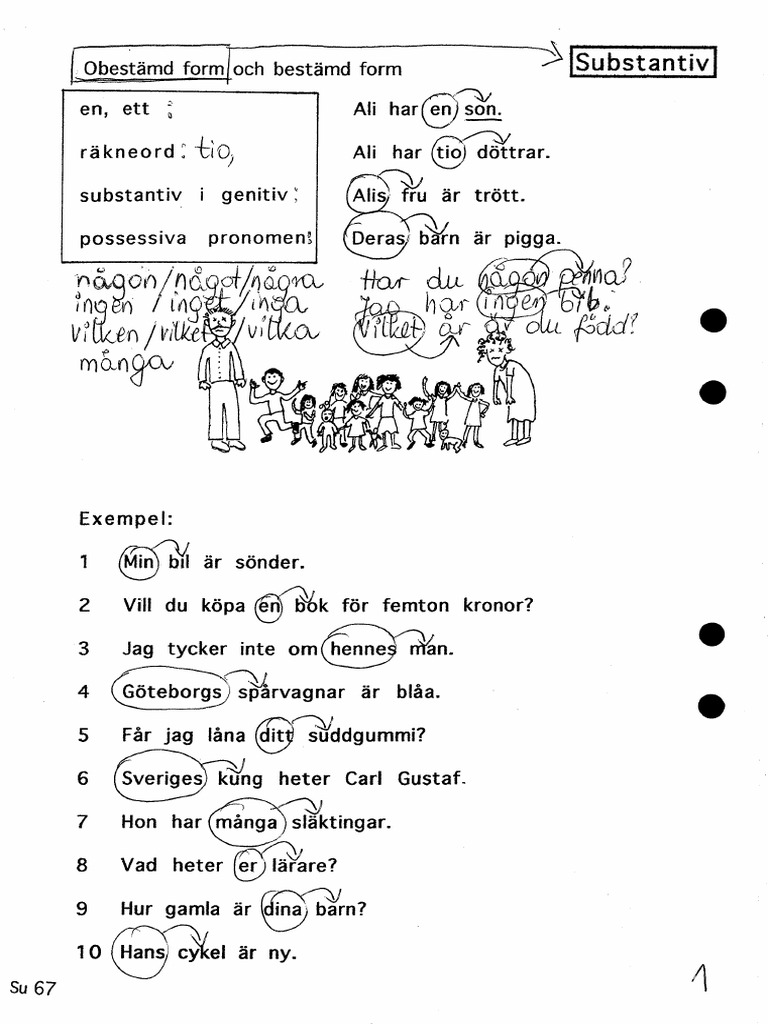 Obestämd form och bestämd form
Substantiv
en, ett :
Ali har en son.
räkneord: tio,
Ali har tio döttrar.
substantiv i genitiv:
Alis fru är trött.
possessiva pronomen:
Deras barn är pigga.
någon/något/några
Har du någon penna?
ingen / inget / inga
Jag har ingen bil.
vilken / vilket / vilka
Vilket år är du född?
många
Exempel:
1 Min bil är sönder.
2 Vill du köpa en bok för femton kronor?
3 Jag tycker inte om hennes man.
4 Göteborgs spårvagnar är blåa.
5 Får jag låna ditt suddgummi?
6 Sveriges kung heter Carl Gustaf.
7 Hon har många släktingar.
8 Vad heter er lärare?
9 Hur gamla är dina barn?
10 Hans cykel är ny.
Su 67
1